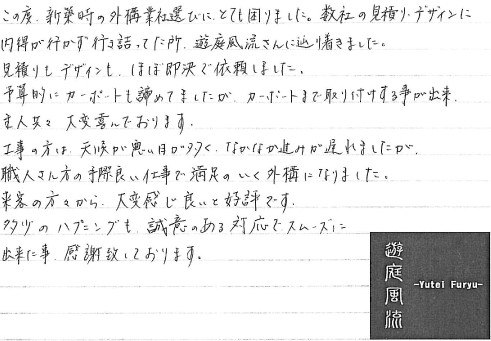 この度、新築時の外構業社選びに、とても困りました。数社の見積り・デザインに
内得が行かず行き詰ってた所、遊庭風流さんに辿り着きました。
見積りも、デザインも、ほぼ即決で依頼しました。
予算的にカーポートも諦めてましたが、カーポートまで取り付けする事が出来、
主人共々、大変喜んでおります。
工事の方は、天候が悪い日が多く、なかなか進みが遅れましたが、
職人さん方の手際良い仕事で満足のいく外構になりました。
来客の方々から、大変感じ良いと好評です。
多少のハプニングも、誠意のある対応でスムーズに
出来た事、感謝致しております。
遊庭風流
-Yutei Furyu-